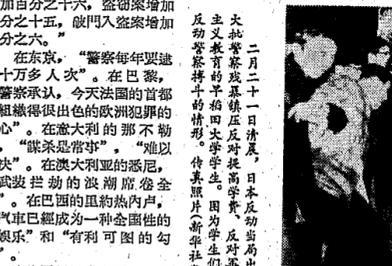 加百分之十六，盗窃案增加
分之十五，破门入盗案增加
分之六。”
在东京，“警察每年要逮
十万多人次”。在巴黎，
警察承认，今天法国的首都
组织得很出色的欧洲犯罪的
心”。在意大利的那不勒
，“谋杀是常事”，“难以
决”。在澳大利亚的悉尼，
武装拦劫的浪潮席卷全
”。在巴西的里约热内卢，
汽车已經成为一种全国性的
娱乐”和“有利可图的勾
”。
二月二十一日清晨，日本反动当局出
大批警察残暴镇压反对提高学费、反对军
主义教育的早稻田大学学生。因为学生们
反动警察搏斗的情形。传真照片（新华社